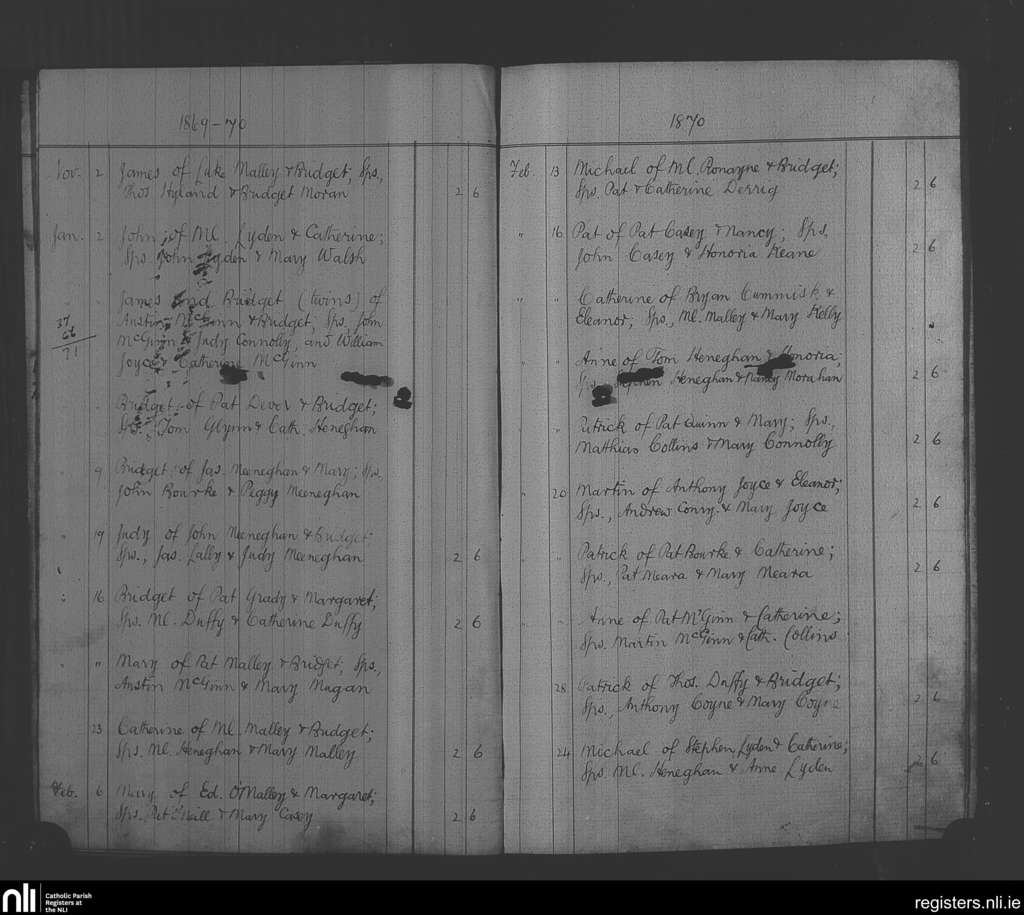 1869-70
Nov. 2 James of Luke Malley & Bridget; Sps.,
Thos Hyland & Bridget Moran 2 6
Jan. 2 John; of Ml. Lyden & Catherine;
Sps. John Lyden & Mary Walsh
" " James and Bridget (twins) of
Austin McGinn & Bridget; Sps. John
McGinn & Judy Connolly, and William
Joyce & Catherine McGinn
37
71
Bridget; of Pat Dever & Bridget;
Sps., Tom Glynn & Cath. Heneghan
" 9 Bridget; of Jas. Meeneghan & Mary; Sps.,
John Bourke & Peggy Meeneghan
" 19 Judy of John Meeneghan & Bridget
Sps., Jas. Lally & Judy Meeneghan 2 6
" 16 Bridget of Pat Grady & Margaret;
Sps. Ml. Duffy & Catherine Duffy 2 6
" " Mary of Pat Malley & Bridget; Sps.,
Austin McGinn & Mary Nugan
23 Catherine of Ml. Malley & Bridget;
Sps. Ml. Heneghan & Mary Malley 2 6
Feb. 6 Mary of Ed. O'Malley & Margaret;
Sps. Pat O'Neill & Mary Casey 2 6
1870
Feb. 13 Michael of Ml. Ronayne & Bridget;
Sps. Pat & Catherine Derrig 2 6
" 16 Pat of Pat Casey & Nancy; Sps.
John Casey & Honoria Keane 2 6
" " Catherine of Bryan Cummisk &
Eleanor; Sps., Ml. Malley & Mary Kelly
" " Anne of Tom Heneghan & Honoria;
Sps. Stephen Heneghan & Nancy Morahan 2 6
" " Patrick of Pat Quinn & Mary; Sps.,
Matthias Collins & Mary Connolly 2 6
" 20 Martin of Anthony Joyce & Eleanor;
Sps., Andrew Conry. & Mary Joyce 2 6
" " Patrick of Pat Bourke & Catherine;
Sps., Pat Meara & Mary Meara 2 6
" " Anne of Pat McGinn & Catherine;
Sps. Martin McGinn & Cath. Collins
28 Patrick of Thos. Duffy & Bridget;
Sps., Anthony Coyne & Mary Coyne 2 6
24 Michael of Stephen Lyden & Catherine;
Sps Ml. Heneghan & Anne Lyden 2 6
nli
Catholic Parish
Registers at
the NLI
registers.nli.ie